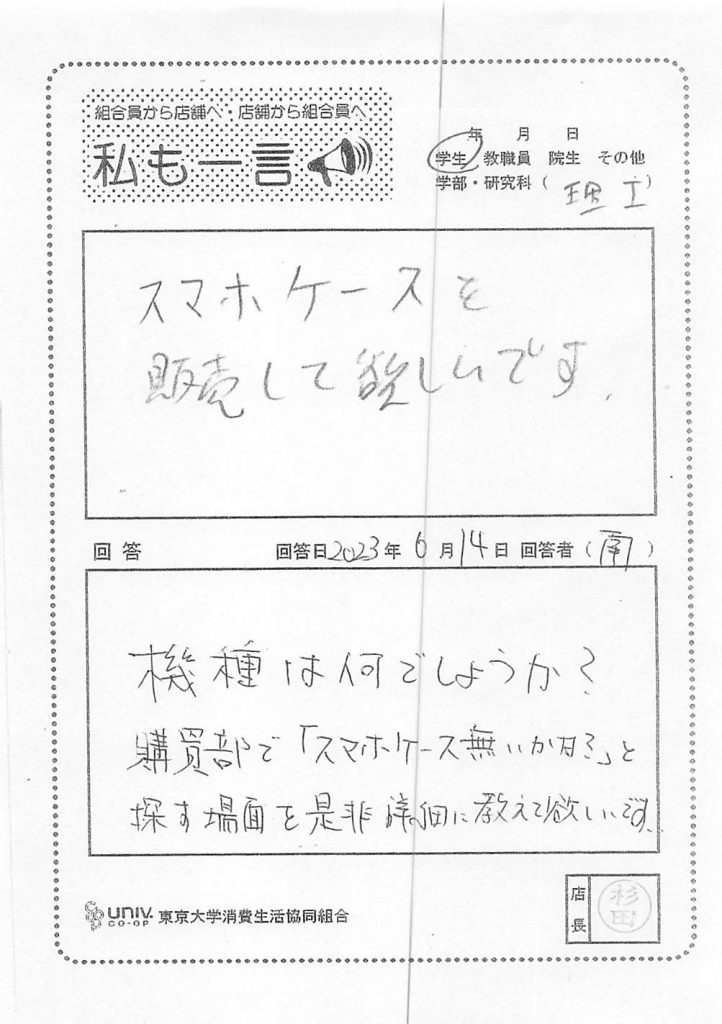 組合員から店舗へ・店舗から組合員へ
私も一言
年 月 日
学生 教職員 院生 その他
学部・研究科（理工）
スマホケースを
販売して欲しいです.
回答 回答日2023年6月14日 回答者（南）
機種は何でしょうか?
購買部で「スマホケース無いかな?」と
探す場面を是非詳細に教えて欲しいです.
UNIV. CO-OP 東京大学消費生活協同組合
店長 杉田